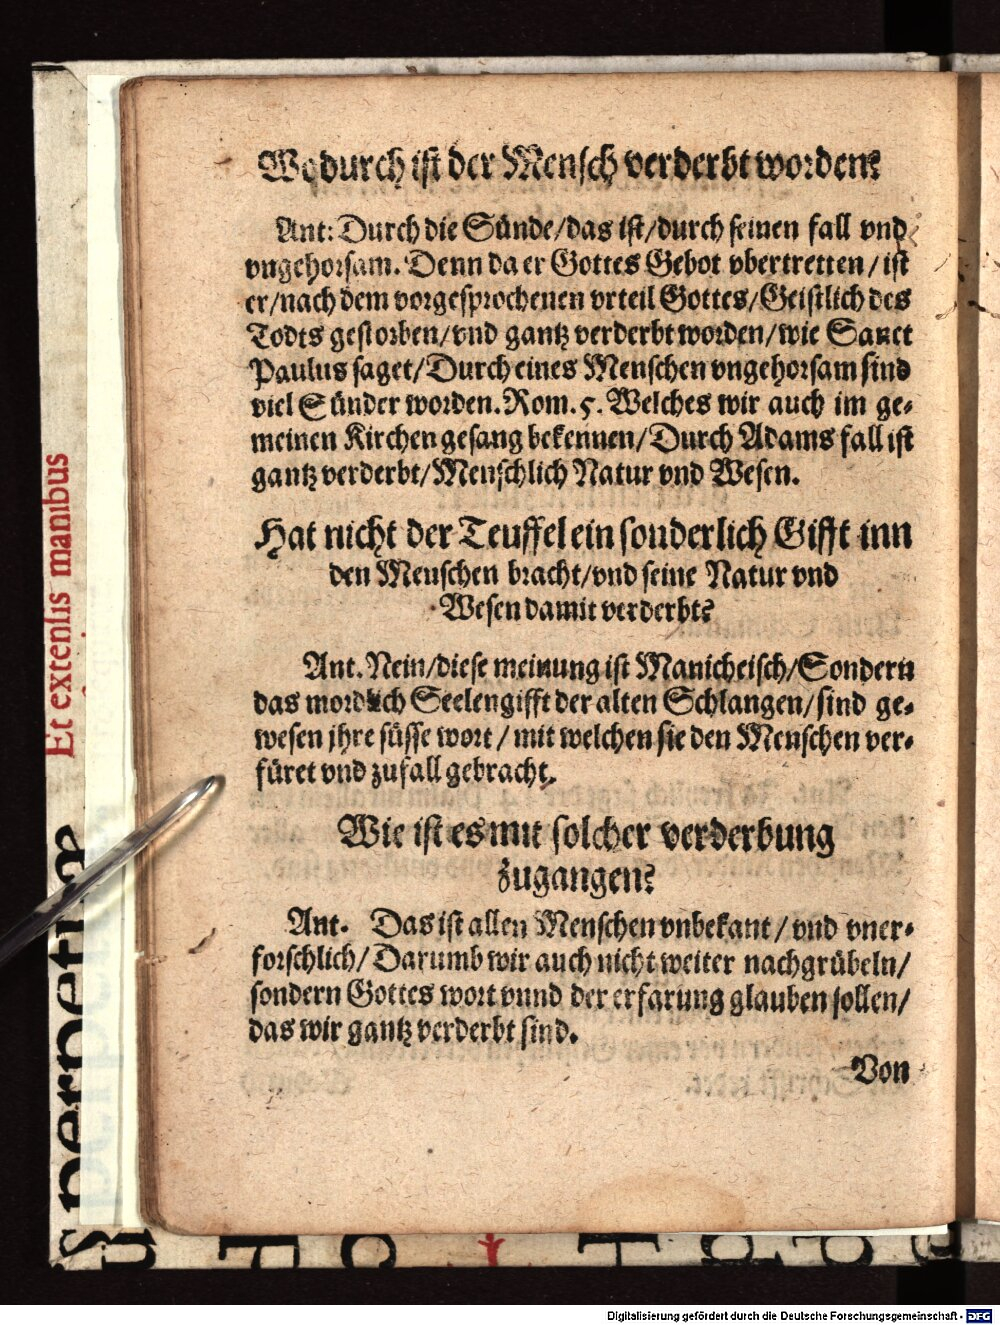 Wodurch ist der Mensch verderbt worden?
Ant: Durch die Sünde/das ist/durch seinen fall vnd
vngehorsam. Denn da er Gottes Gebot vbertretten/ist
er/nach dem vorgesprochenen vrteil Gottes/Geistlich des
Todts gestorben/vnd gantz verderbt worden/wie Sanct
Paulus saget/Durch eines Menschen vngehorsam sind
viel Sünder worden. Rom. 5. Welches wir auch im ge-
meinen Kirchen gesang bekennen/Durch Adams fall ist
gantz verderbt/Menschlich Natur vnd Wesen.
Hat nicht der Teuffel ein sonderlich Gifft inn
den Menschen bracht/vnd seine Natur vnd
Wesen damit verderbt?
Ant. Nein/diese meinung ist Manicheisch/Sondern
das mordlich Seelengifft der alten Schlangen/sind ge-
wesen jhre süsse wort/mit welchen sie den Menschen ver-
füret vnd zu fall gebracht.
Wie ist es mit solcher verderbung
zugangen?
Ant. Das ist allen Menschen vnbekant/vnd vner-
forschlich/Darumb wir auch nicht weiter nachgrübeln/
sondern Gottes wort vnnd der erfarung glauben sollen/
das wir gantz verderbt sind.
Von
Et extensis manibus
perpetuæ
Digitalisierung gefördert durch die Deutsche Forschungsgemeinschaft - DFG